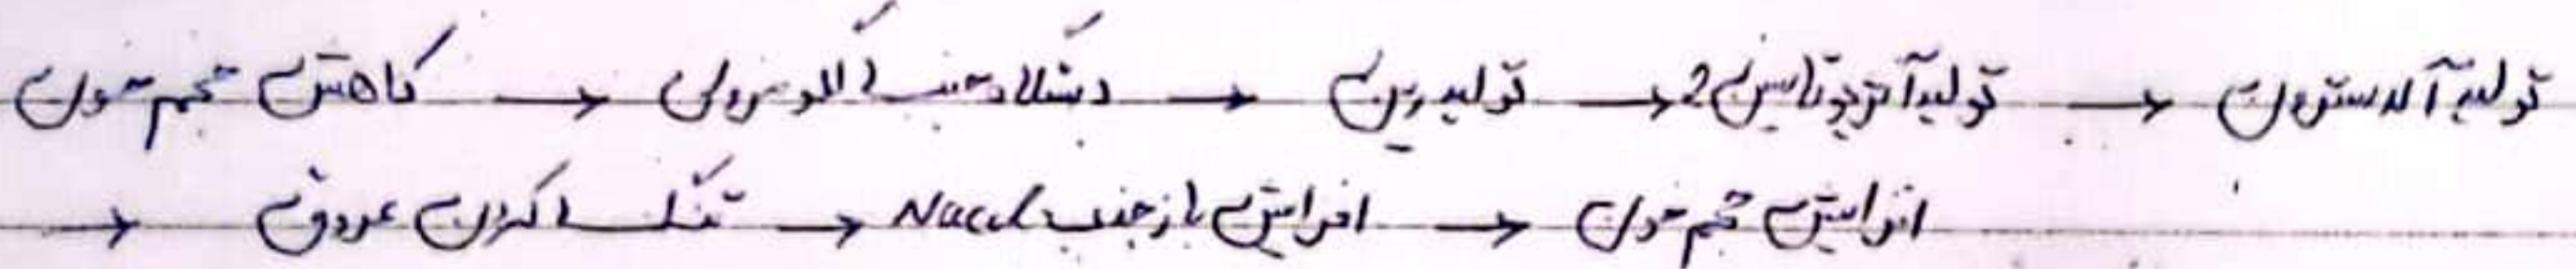 کاهش حجم خون → دستگاه جنب گلومرولی → تولید رنین → تولید آنژیوتانسین 2 → تولید آلدسترون
→ تنگ کردن عروق → افزایش بازجذب NaCl → افزایش حجم خون